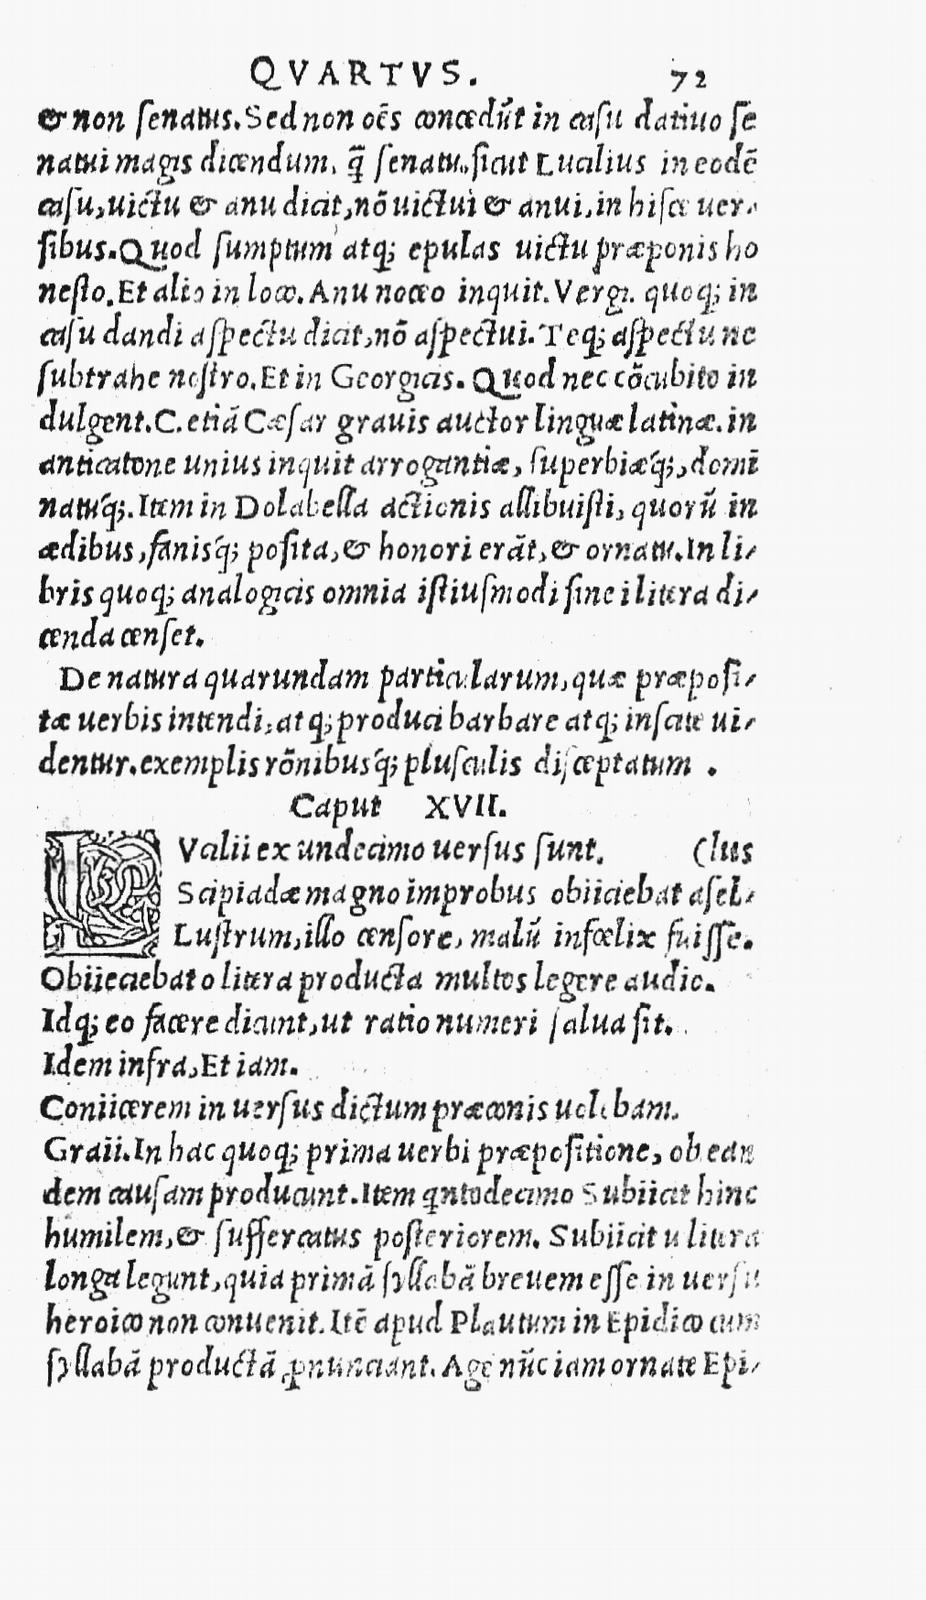 QVARTVS. 72
& non ſenatus. Sed non oẽs concedũt in caſu datiuo ſe
natui magis dicendum, q̃ ſenatu. ſicut Lucilius in eodẽ
caſu, uictu & anu dicit, nõ uictui & anui, in hiſce uer-
ſibus. Quod ſumptum atq; epulas uictu præponis ho
neſto. Et alio in loco. Anu noceo inquit. Vergi. quoq; in
caſu dandi aſpectu dicit, nõ aſpectui. Teq; aſpectu ne
ſubtrahe noſtro. Et in Georgicis. Quod nec cõcubito in
dulgent. C. etiã Cæſar grauis auctor linguæ latinæ. in
anticatone unius inquit arrogantiæ, ſuperbiæq́;, domi
natuq́;. Item in Dolabella actionis allibuiſti, quorũ in
ædibus, faniſq́; poſita, & honori erãt, & ornatu. In li-
bris quoq; analogicis omnia iſtiuſmodi ſine i litera di-
cenda cenſet.
De natura quarundam particularum, quæ præpoſi-
tæ uerbis intendi, atq; produci barbare atq; inſcite ui-
dentur. exemplis rõnibusq́; pluſculis diſceptatum .
Caput XVII.
LVcilii ex undecimo uerſus ſunt. (lus
Scipiadæ magno improbus obiiciebat aſel-
Luſtrum, illo cenſore, malũ infœlix fuiſſe.
Obiieciebat o litera producta multos legere audio.
Idq; eo facere dicunt, ut ratio numeri ſalua ſit.
Idem infra, Et iam.
Coniicerem in uerſus dictum præconis uolebam.
Graii. In hac quoq; prima uerbi præpoſitione, ob ean
dem cauſam producunt. Item qntodecimo Subiicit hinc
humilem, & ſuffercatus poſteriorem. Subiicit u litera
longa legunt, quia primã ſyllabã breuem eſſe in uerſu
heroico non conuenit. Itẽ apud Plautum in Epidico cum
ſyllabã productã ꝓnunciant. Age nũc iam ornate Epi-